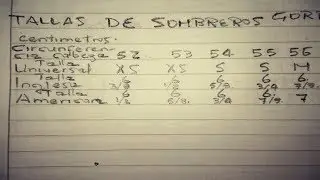 TALLAS DE SOMBREROS GORR
Centimetros
Circunferen-
cia Cabeza 52 53 54 55 56
Talla
Universal XS XS S S M
Talla 6 6 6 6 6
Inglesa 3/8 1/2 5/8 3/4 7/8
Talla 6 6 6 6
Americana 1/2 5/8 3/4 7/8 7